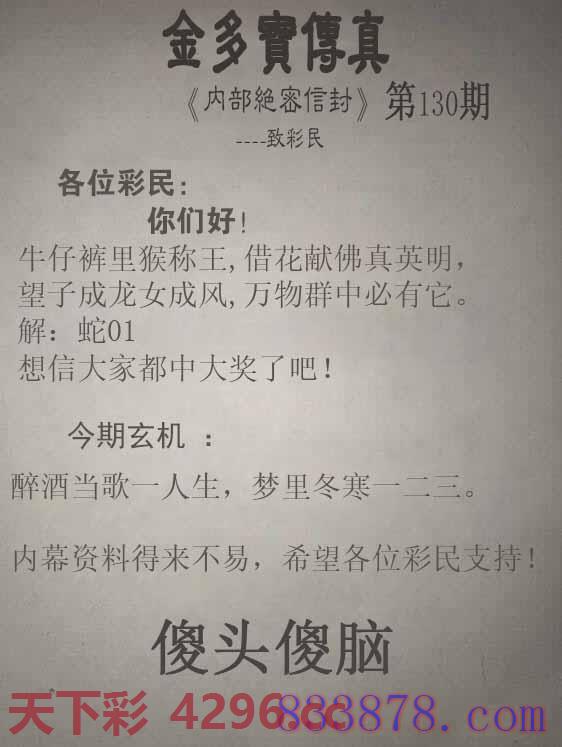 金多寳傳真
《内部絕密信封》第130期
----致彩民
各位彩民:
你们好!
牛仔裤里猴称王,借花献佛真英明，
望子成龙女成风,万物群中必有它。
解：蛇01
想信大家都中大奖了吧!
今期玄机 ：
醉酒当歌一人生，梦里冬寒一二三。
内幕资料得来不易，希望各位彩民支持!
傻头傻脑
天下彩 4296.cc 883878.com